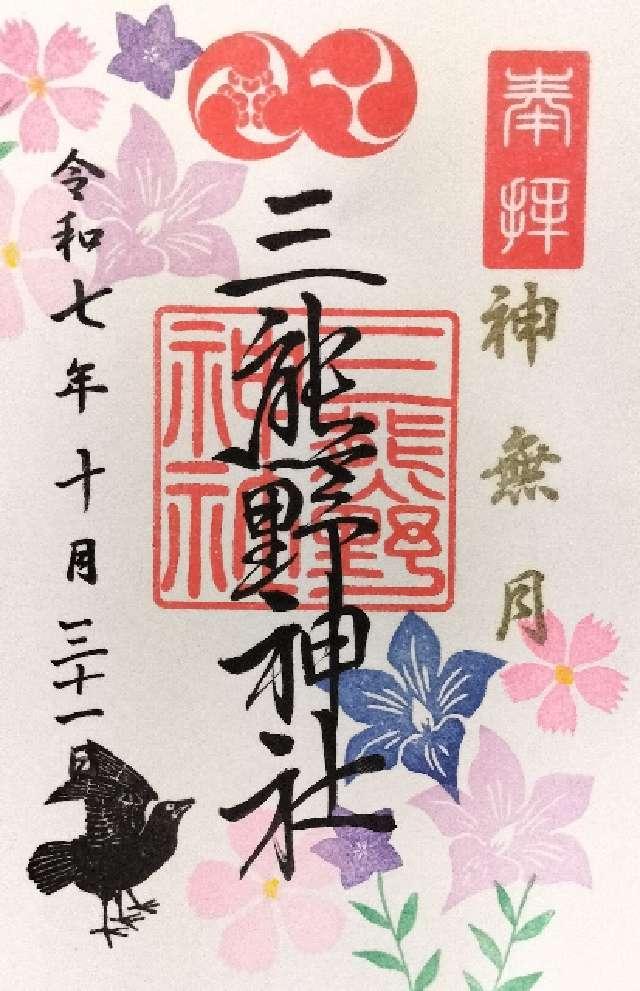 奉拝
神無月
三熊野神社
三熊野神社
令和七年十月三十一日